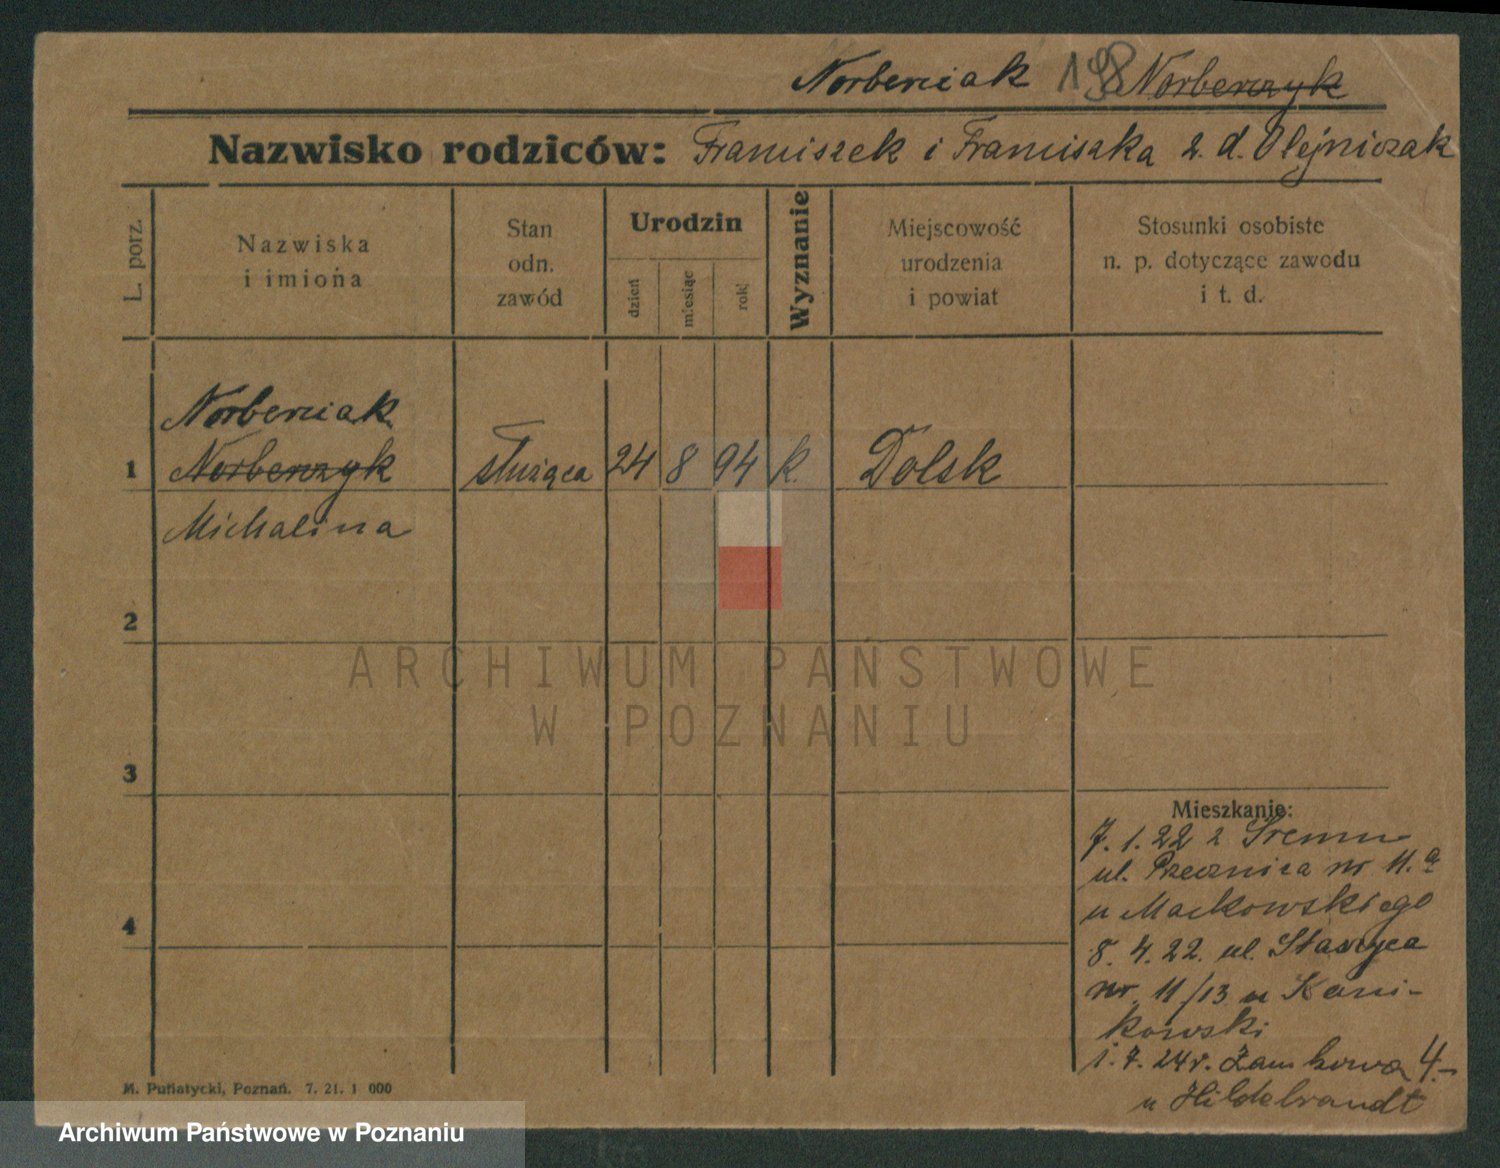 Norberciak 198 Norberczyk
Nazwisko rodziców: Franciszek i Franciszka z. d. Olejniczak
L. porz.
Nazwiska
i imiona
Stan
odn.
zawód
Urodzin
dzień
miesiąc
rok
Wyznanie
Miejscowość
urodzenia
i powiat
Stosunki osobiste
n. p. dotyczące zawodu
i t. d.
Norberciak
1 Norberczyk służąca 24 8 94 k. Dolsk
Michalina
2
ARCHIWUM PAŃSTWOWE
W POZNANIU
3
Mieszkanie:
7. 1. 22 z Śremu
ul. Przecznica nr 11.a
u Maćkowskiego
4
8. 4. 22. ul. Staszyca
nr 11/13 u Kani-
kowski
1. 7. 24 r. Zamkowa 4.-
u Hildebrandt
M. Putiatycki, Poznań. 7. 21. 1 000
Archiwum Państwowe w Poznaniu